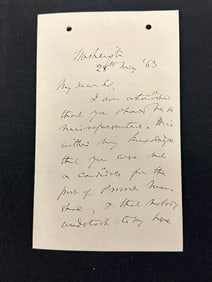 Washington
28th May '63
My dear Sir,
I am astonished
that you should be so
misrepresented. It is
within my knowledge
that you were not
a candidate for the
post of Provost Mar-
shal, & that nobody
undertook to